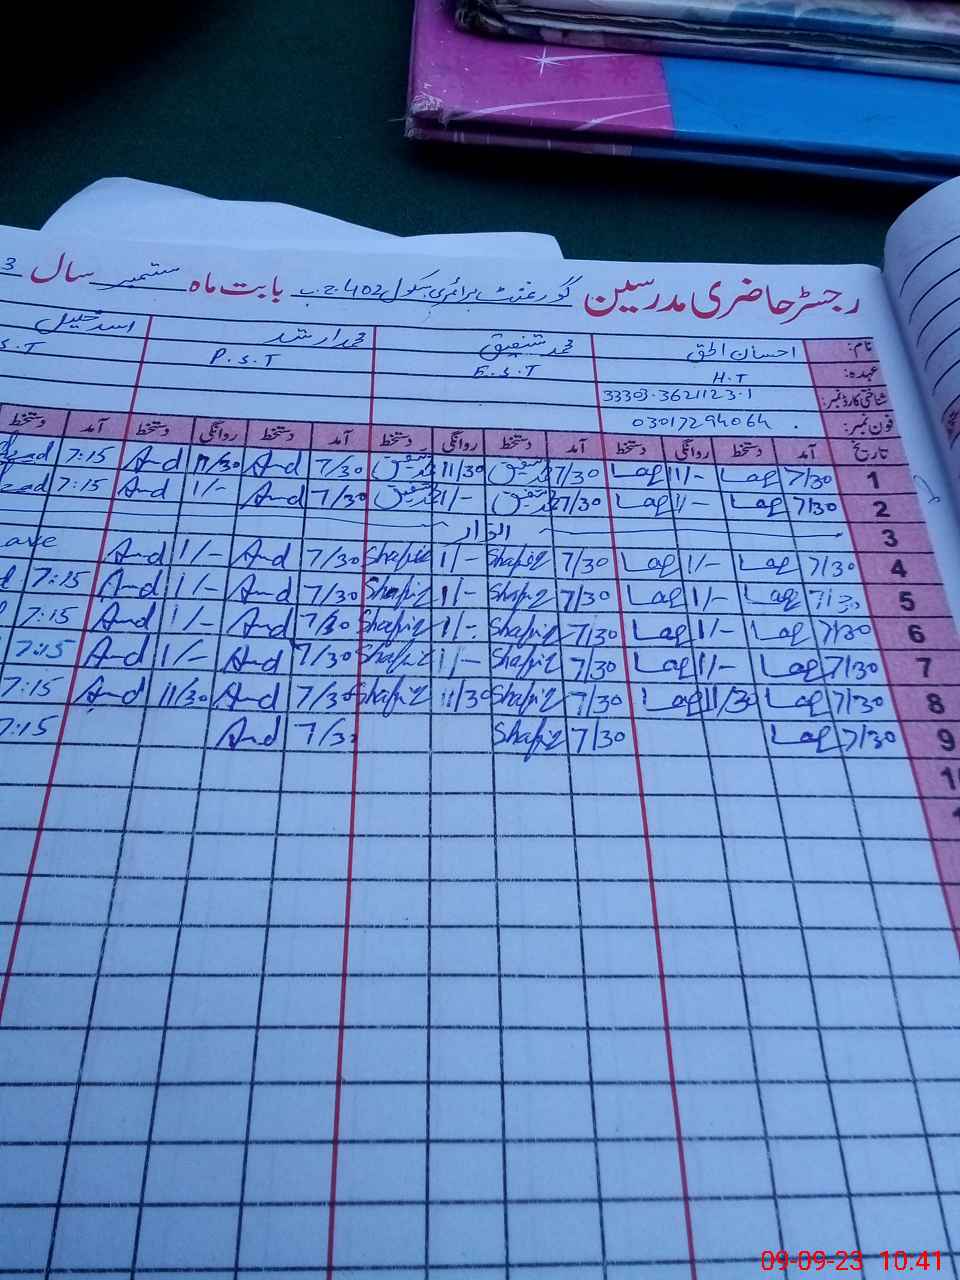 رجسٹر حاضری مدرسین گورنمنٹ پرائمری سکول 402 ج.ب بابت ماہ ستمبر سال 3
نام: احسان الحق محمد شفیق محمد ارشد اسد خلیل
عہدہ: H.T E.S.T P.S.T S.T
شناختی کارڈ نمبر: 33303-3621123-1
فون نمبر: 03017294064
تاریخ آمد دستخط روانگی دستخط آمد دستخط روانگی دستخط آمد دستخط روانگی دستخط آمد دستخط
1 7/30 Laq 11/- Laq 7/30 شفیق 11/30 شفیق 7/30 And 11/30 And 7:15
2 7/30 Laq 1/- Laq 7/30 شفیق 1/- شفیق 7/30 And 1/- And 7:15
3 اتوار
4 7/30 Laq 1/- Laq 7/30 Shafiq 1/- Shafiq 7/30 And 1/- And ave
5 7/30 Laq 1/- Laq 7/30 Shafiq 1/- Shafiq 7/30 And 1/- And 7:15
6 7/30 Laq 1/- Laq 7/30 Shafiq 1/- Shafiq 7/30 And 1/- And 7:15
7 7/30 Laq 1/- Laq 7/30 Shafiq 1/- Shafiq 7/30 And 1/- And 7:15
8 7/30 Laq 11/30 Laq 7/30 Shafiq 11/30 Shafiq 7/30 And 11/30 And 7:15
9 7/30 Laq 7/30 Shafiq 7/30 And 7:15
09-09-23 10.41